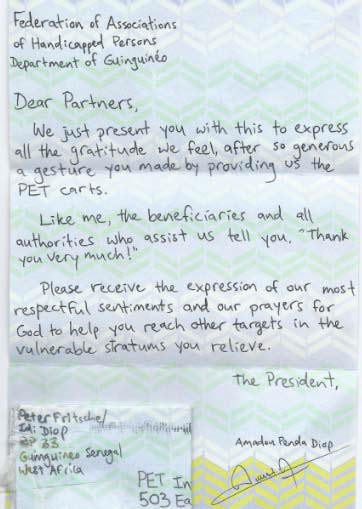 Federation of Associations
of Handicapped Persons
Department of Guinguinéo
Dear Partners,
We just present you with this to express
all the gratitude we feel, after so generous
a gesture you made by providing us the
PET carts.
Like me, the beneficiaries and all
authorities who assist us tell you, "Thank
you very much!"
Please receive the expression of our most
respectful sentiments and our prayers for
God to help you reach other targets in the
vulnerable stratums you relieve.
The President,
Amadou Penda Diop
Peter Fritsche/
Idi Diop
BP 33
Guinguineo Senegal
West Africa
PET In
503 Ea